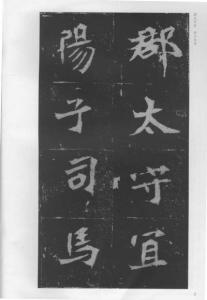 郡太守宜
陽子司馬